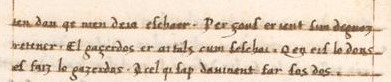 ten dan qe men deia escaer. Per zous er uent sun deguoz
retener. El gazerdos er aitals cum seschai. Q en eis lo dons
es faiz lo gazerdos. Q cel qi sap dauinent far sos dos.